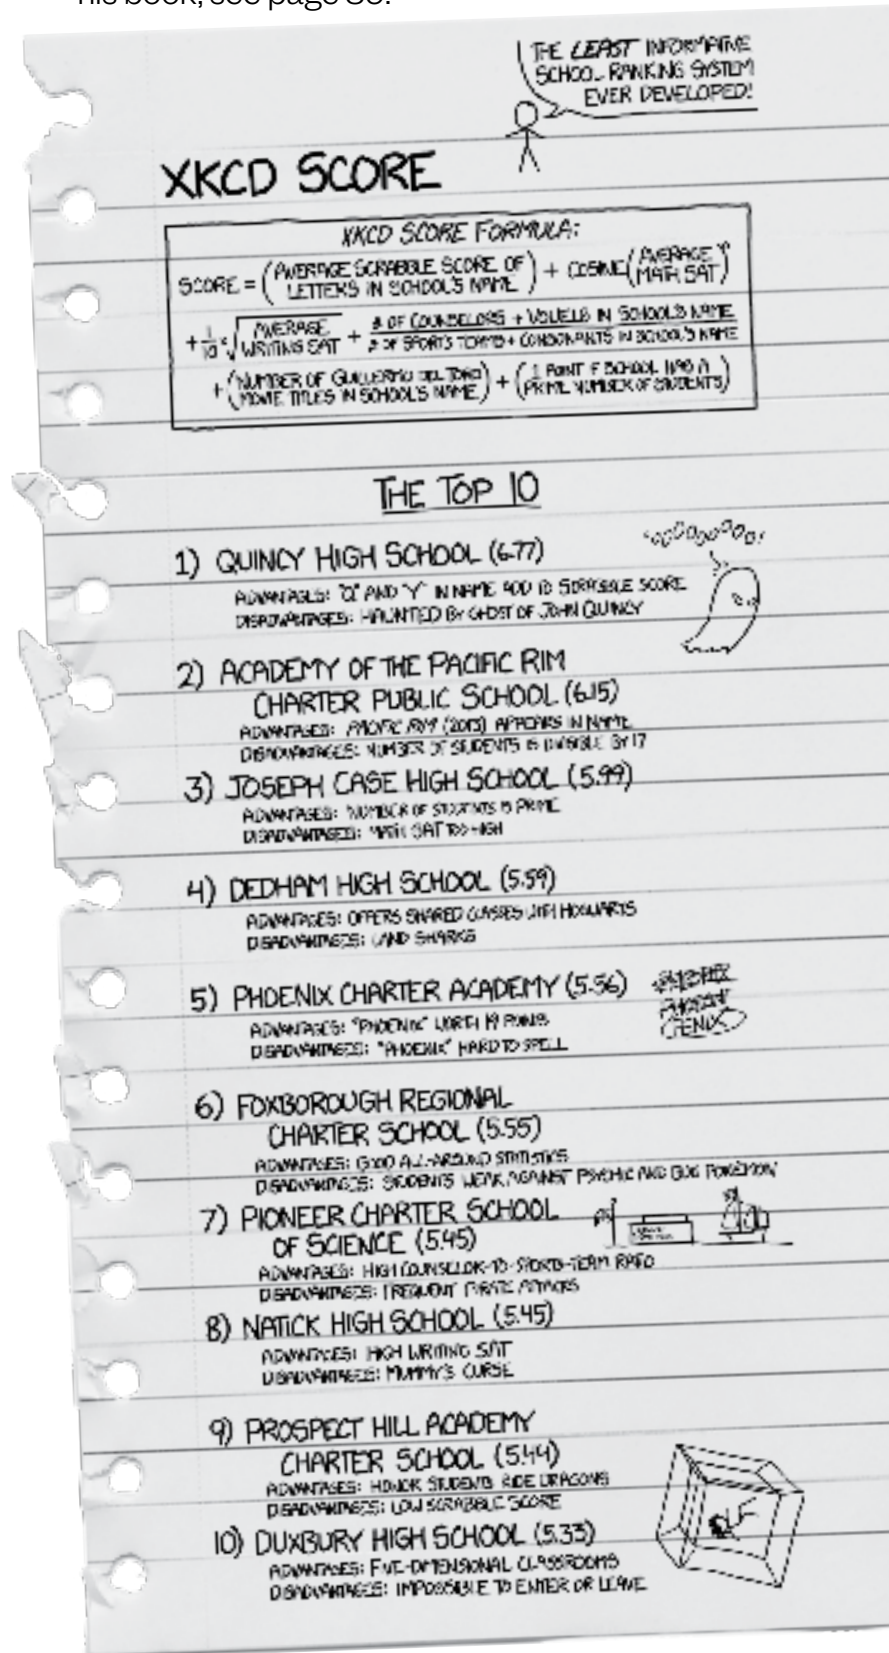 his book, see page 80.
THE LEAST INFORMATIVE
SCHOOL RANKING SYSTEM
EVER DEVELOPED!
XKCD SCORE
XKCD SCORE FORMULA:
SCORE = (AVERAGE SCRABBLE SCORE OF LETTERS IN SCHOOL'S NAME) + COSINE(AVERAGE MATH SAT)
+ 1/10 √AVERAGE WRITING SAT + # OF COUNSELORS + VOWELS IN SCHOOL'S NAME / # OF SPORTS TEAMS + CONSONANTS IN SCHOOL'S NAME
+ (NUMBER OF GUILLERMO DEL TORO MOVIE TITLES IN SCHOOL'S NAME) + (1 POINT IF SCHOOL HAS A PRIME NUMBER OF STUDENTS)
THE TOP 10
1) QUINCY HIGH SCHOOL (6.77)
ADVANTAGES: "Q" AND "Y" IN NAME ADD TO SCRABBLE SCORE
DISADVANTAGES: HAUNTED BY GHOST OF JOHN QUINCY
2) ACADEMY OF THE PACIFIC RIM
CHARTER PUBLIC SCHOOL (6.15)
ADVANTAGES: PACIFIC RIM (2013) APPEARS IN NAME
DISADVANTAGES: NUMBER OF STUDENTS IS DIVISIBLE BY 17
3) JOSEPH CASE HIGH SCHOOL (5.99)
ADVANTAGES: NUMBER OF STUDENTS IS PRIME
DISADVANTAGES: MATH SAT TOO HIGH
4) DEDHAM HIGH SCHOOL (5.59)
ADVANTAGES: OFFERS SHARED CLASSES WITH HOGWARTS
DISADVANTAGES: LAND SHARKS
5) PHOENIX CHARTER ACADEMY (5.56)
ADVANTAGES: "PHOENIX" WORTH 19 POINTS
DISADVANTAGES: "PHOENIX" HARD TO SPELL
6) FOXBOROUGH REGIONAL
CHARTER SCHOOL (5.55)
ADVANTAGES: GOOD ALL-AROUND STATISTICS
DISADVANTAGES: STUDENTS WEAK AGAINST PSYCHIC AND BUG POKÉMON
7) PIONEER CHARTER SCHOOL
OF SCIENCE (5.45)
ADVANTAGES: HIGH COUNSELOR-TO-SPORTS-TEAM RATIO
DISADVANTAGES: FREQUENT PIRATE ATTACKS
8) NATICK HIGH SCHOOL (5.45)
ADVANTAGES: HIGH WRITING SAT
DISADVANTAGES: MUMMY'S CURSE
9) PROSPECT HILL ACADEMY
CHARTER SCHOOL (5.44)
ADVANTAGES: HONOR STUDENTS RIDE DRAGONS
DISADVANTAGES: LOW SCRABBLE SCORE
10) DUXBURY HIGH SCHOOL (5.33)
ADVANTAGES: FIVE-DIMENSIONAL CLASSROOMS
DISADVANTAGES: IMPOSSIBLE TO ENTER OR LEAVE